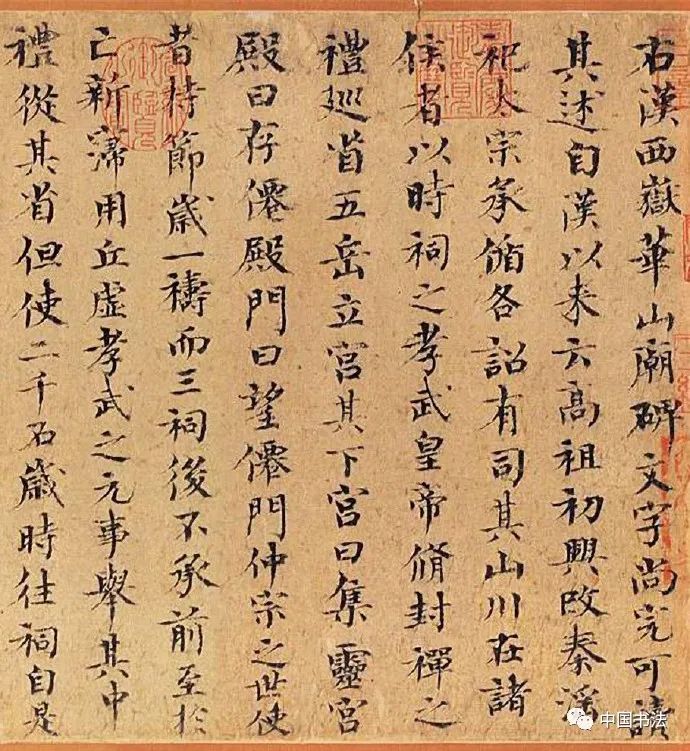 右漢西嶽華山廟碑文字尚完可讀
其述自漢以来云高祖初興改秦淫
祀太宗承循各詔有司其山川在諸
侯者以時祠之孝武皇帝脩封禪之
禮巡省五岳立宮其下宮曰集靈宮
殿曰存僊殿門曰望僊門仲宗之世使
者持節歲一禱而三祠後不承前至於
亡新寖用丘虛孝武之元事舉其中
禮從其省但使二千石歲時往祠自是
中国书法